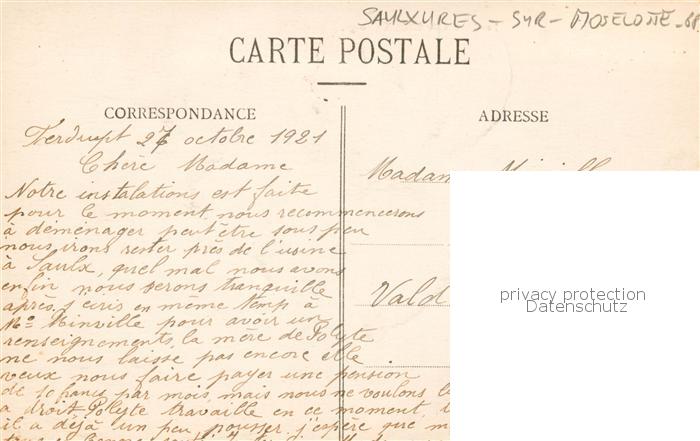 SAULXURES - SUR - MOSELOTTE - 88
CARTE POSTALE
CORRESPONDANCE
ADRESSE
27 octobre 1921
Chère Madame
Notre instalations est faite
pour le moment nous recommencerons
à déménager peut être sous peu
nous irons rester près de l'usine
à Saulx, quel mal nous avons
enfin nous serons tranquille
après, j'ecris en même temp à
Me Minville pour avoir un
renseignements, la mère de Polyte
ne nous laisse pas encore elle
veux nous faire payer une pension
de 10 francs par mois, mais nous ne voulons,
a droit Polyte travaille en ce moment,
il a déjà un peu pousser j'espère que
Madam
Vald
privacy protection
Datenschutz